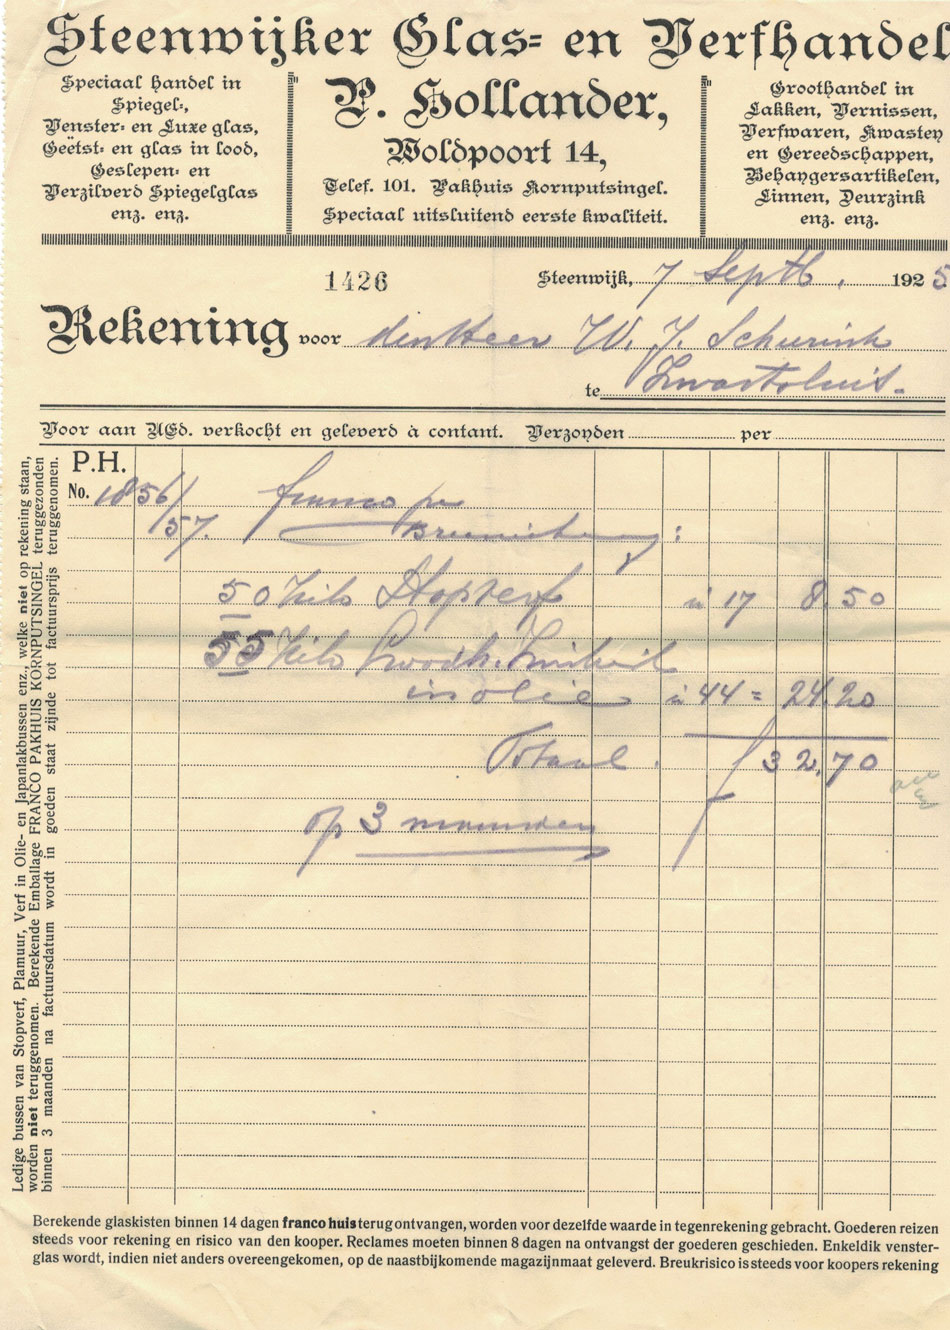 Steenwijker Glas= en Verfhandel
Speciaal handel in
Spiegel-,
Venster- en Luxe glas,
Geëtst- en glas in lood,
Geslepen- en
Verzilverd Spiegelglas
enz. enz.
P. Hollander,
Woldpoort 14,
Telef. 101. Pakhuis Kornputsingel.
Speciaal uitsluitend eerste kwaliteit.
Groothandel in
Lakken, Vernissen,
Verfwaren, Kwasten
en Gereedschappen,
Behangersartikelen,
Linnen, Deurzink
enz. enz.
1426
Steenwijk, 7 Septb. 1925
Rekening voor den Heer W. J. Schurink
te Zwartsluis.
Voor aan UEd. verkocht en geleverd à contant. Verzonden per
P.H.
No. 1856/
57. franco per
:
50 Kilo Stopverf à 17 8.50
55 Kilo Zinkwit
in olie à 44 = 24.20
Totaal. f 32.70
op 3 maanden
Ledige bussen van Stopverf, Plamuur, Verf in Olie- en Japanlakbussen enz., welke niet op rekening staan,
worden niet teruggenomen. Berekende Emballage FRANCO PAKHUIS KORNPUTSINGEL teruggezonden
binnen 3 maanden na factuursdatum wordt in goeden staat zijnde tot factuursprijs teruggenomen.
Berekende glaskisten binnen 14 dagen franco huis terugontvangen, worden voor dezelfde waarde in tegenrekening gebracht. Goederen reizen
steeds voor rekening en risico van den kooper. Reclames moeten binnen 8 dagen na ontvangst der goederen geschieden. Enkeldik venster-
glas wordt, indien niet anders overeengekomen, op de naastbijkomende magazijnmaat geleverd. Breukrisico is steeds voor koopers rekening